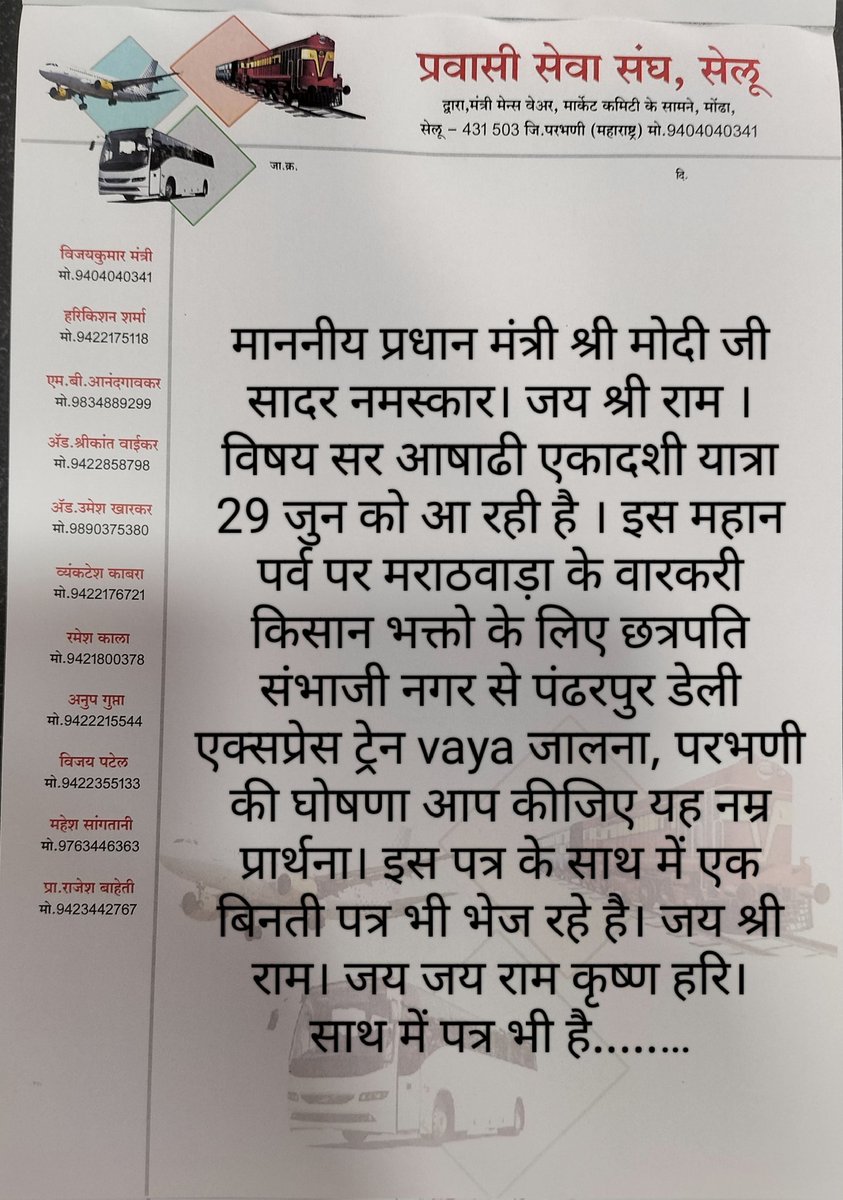 प्रवासी सेवा संघ, सेलू
द्वारा,मंत्री मेन्स वेअर, मार्केट कमिटी के सामने, मोंढा,
सेलू – 431 503 जि.परभणी (महाराष्ट्र) मो.9404040341
जा.क्र.
दि.
विजयकुमार मंत्री
मो.9404040341
हरिकिशन शर्मा
मो.9422175118
एम.बी.आनंदगावकर
मो.9834889299
ॲड.श्रीकांत वाईकर
मो.9422858798
ॲड.उमेश खारकर
मो.9890375380
व्यंकटेश काबरा
मो.9422176721
रमेश काला
मो.9421800378
अनुप गुप्ता
मो.9422215544
विजय पटेल
मो.9422355133
महेश सांगतानी
मो.9763446363
प्रा.राजेश बाहेती
मो.9423442767
माननीय प्रधान मंत्री श्री मोदी जी
सादर नमस्कार। जय श्री राम ।
विषय सर आषाढी एकादशी यात्रा
29 जुन को आ रही है । इस महान
पर्व पर मराठवाड़ा के वारकरी
किसान भक्तो के लिए छत्रपति
संभाजी नगर से पंढरपुर डेली
एक्सप्रेस ट्रेन vaya जालना, परभणी
की घोषणा आप कीजिए यह नम्र
प्रार्थना। इस पत्र के साथ में एक
बिनती पत्र भी भेज रहे है। जय श्री
राम। जय जय राम कृष्ण हरि।
साथ में पत्र भी है........